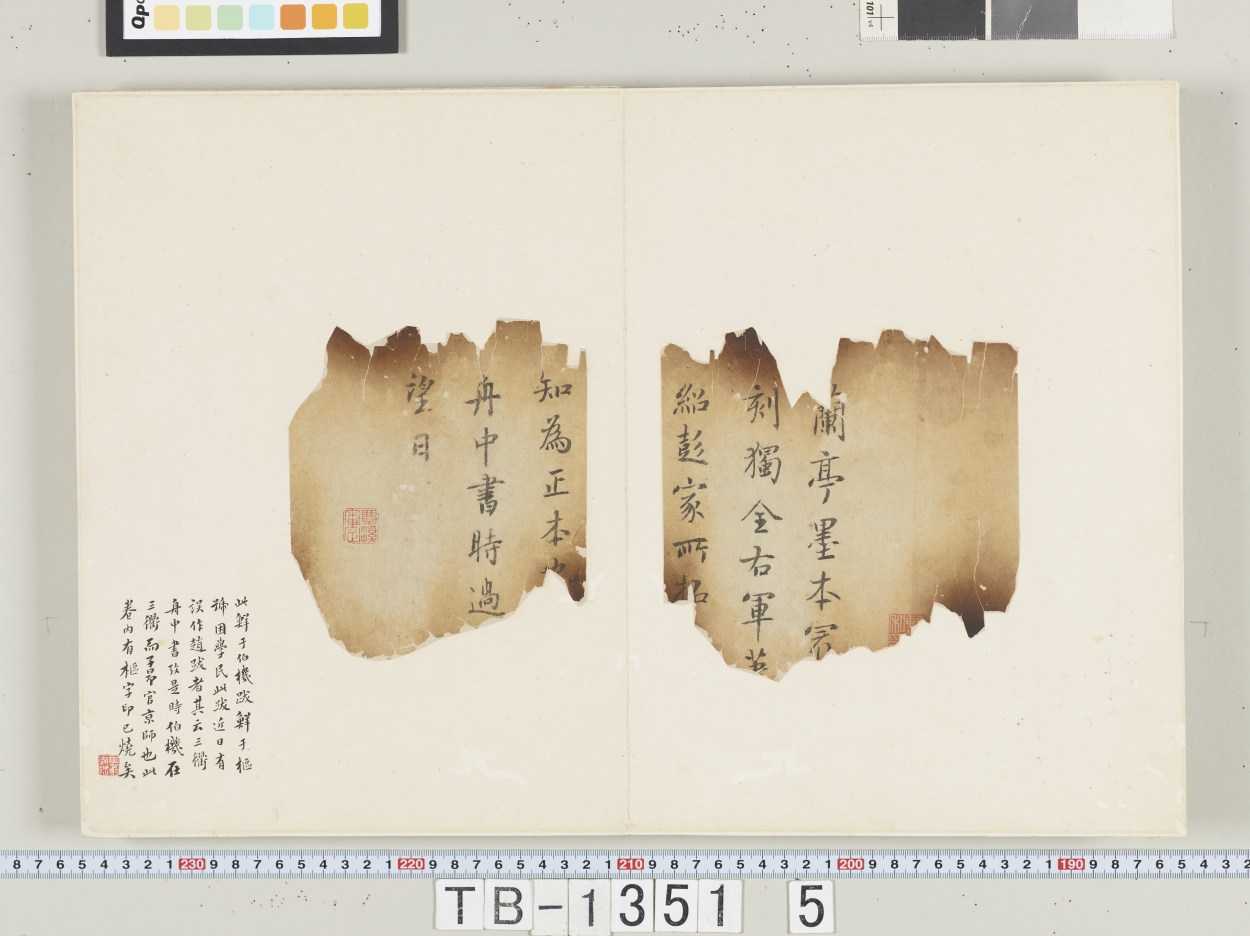 蘭亭墨本宋
刻獨全右軍
紹彭家所拓
知為正本也
舟中書時過
望日
此鮮于伯機跋鮮于樞
號困學民此跋近日有
誤作趙跋者其云三衢
舟中書攷是時伯機在
三衢而子昂官京師也此
卷內有樞字印已燒矣
TB-1351 5
8 7 6 5 4 3 2 1 230 9 8 7 6 5 4 3 2 1 220 9 8 7 6 5 4 3 2 1 210 9 8 7 6 5 4 3 2 1 200 9 8 7 6 5 4 3 2 1 190 9 8 7 6 5 4 3 2